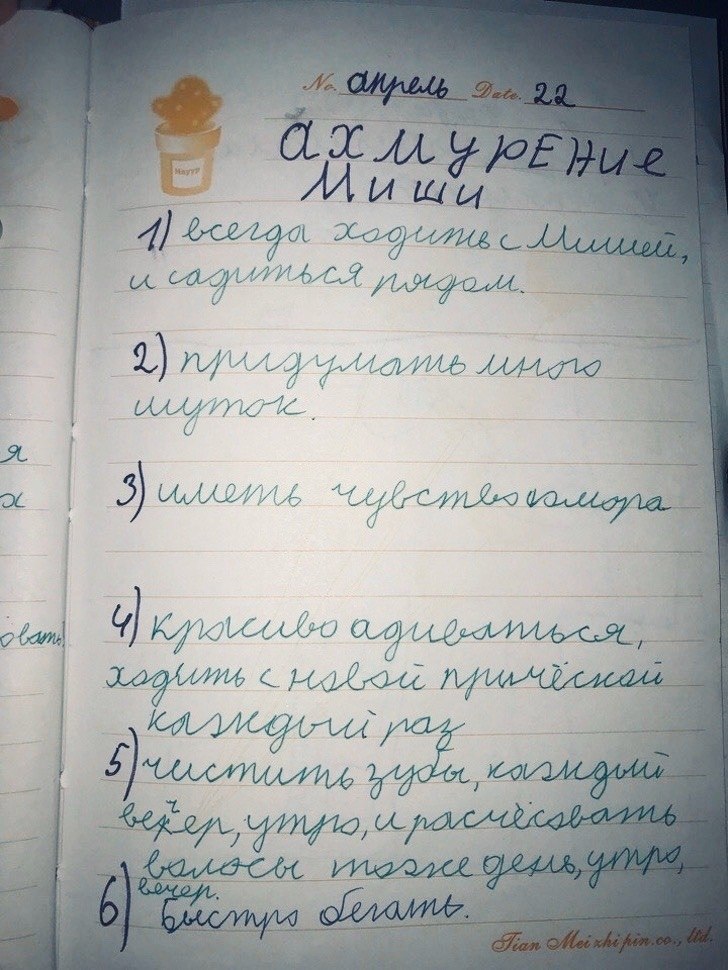 No. апрель Date. 22
ахмурЕние
Миши
1) всегда ходить с Мишей,
и садиться рядом.
2) придумать много
шуток.
3) иметь чувство юмора
4) красиво адиваться,
ходить с новой причёской
каждый раз
5) чистить зубы, каждый
вечер, утро, и расчёсовать
волосы тоже день, утро,
вечер.
6) Быстро бегать.
я
х
овать
Tian Meizhipin.co., ltd.